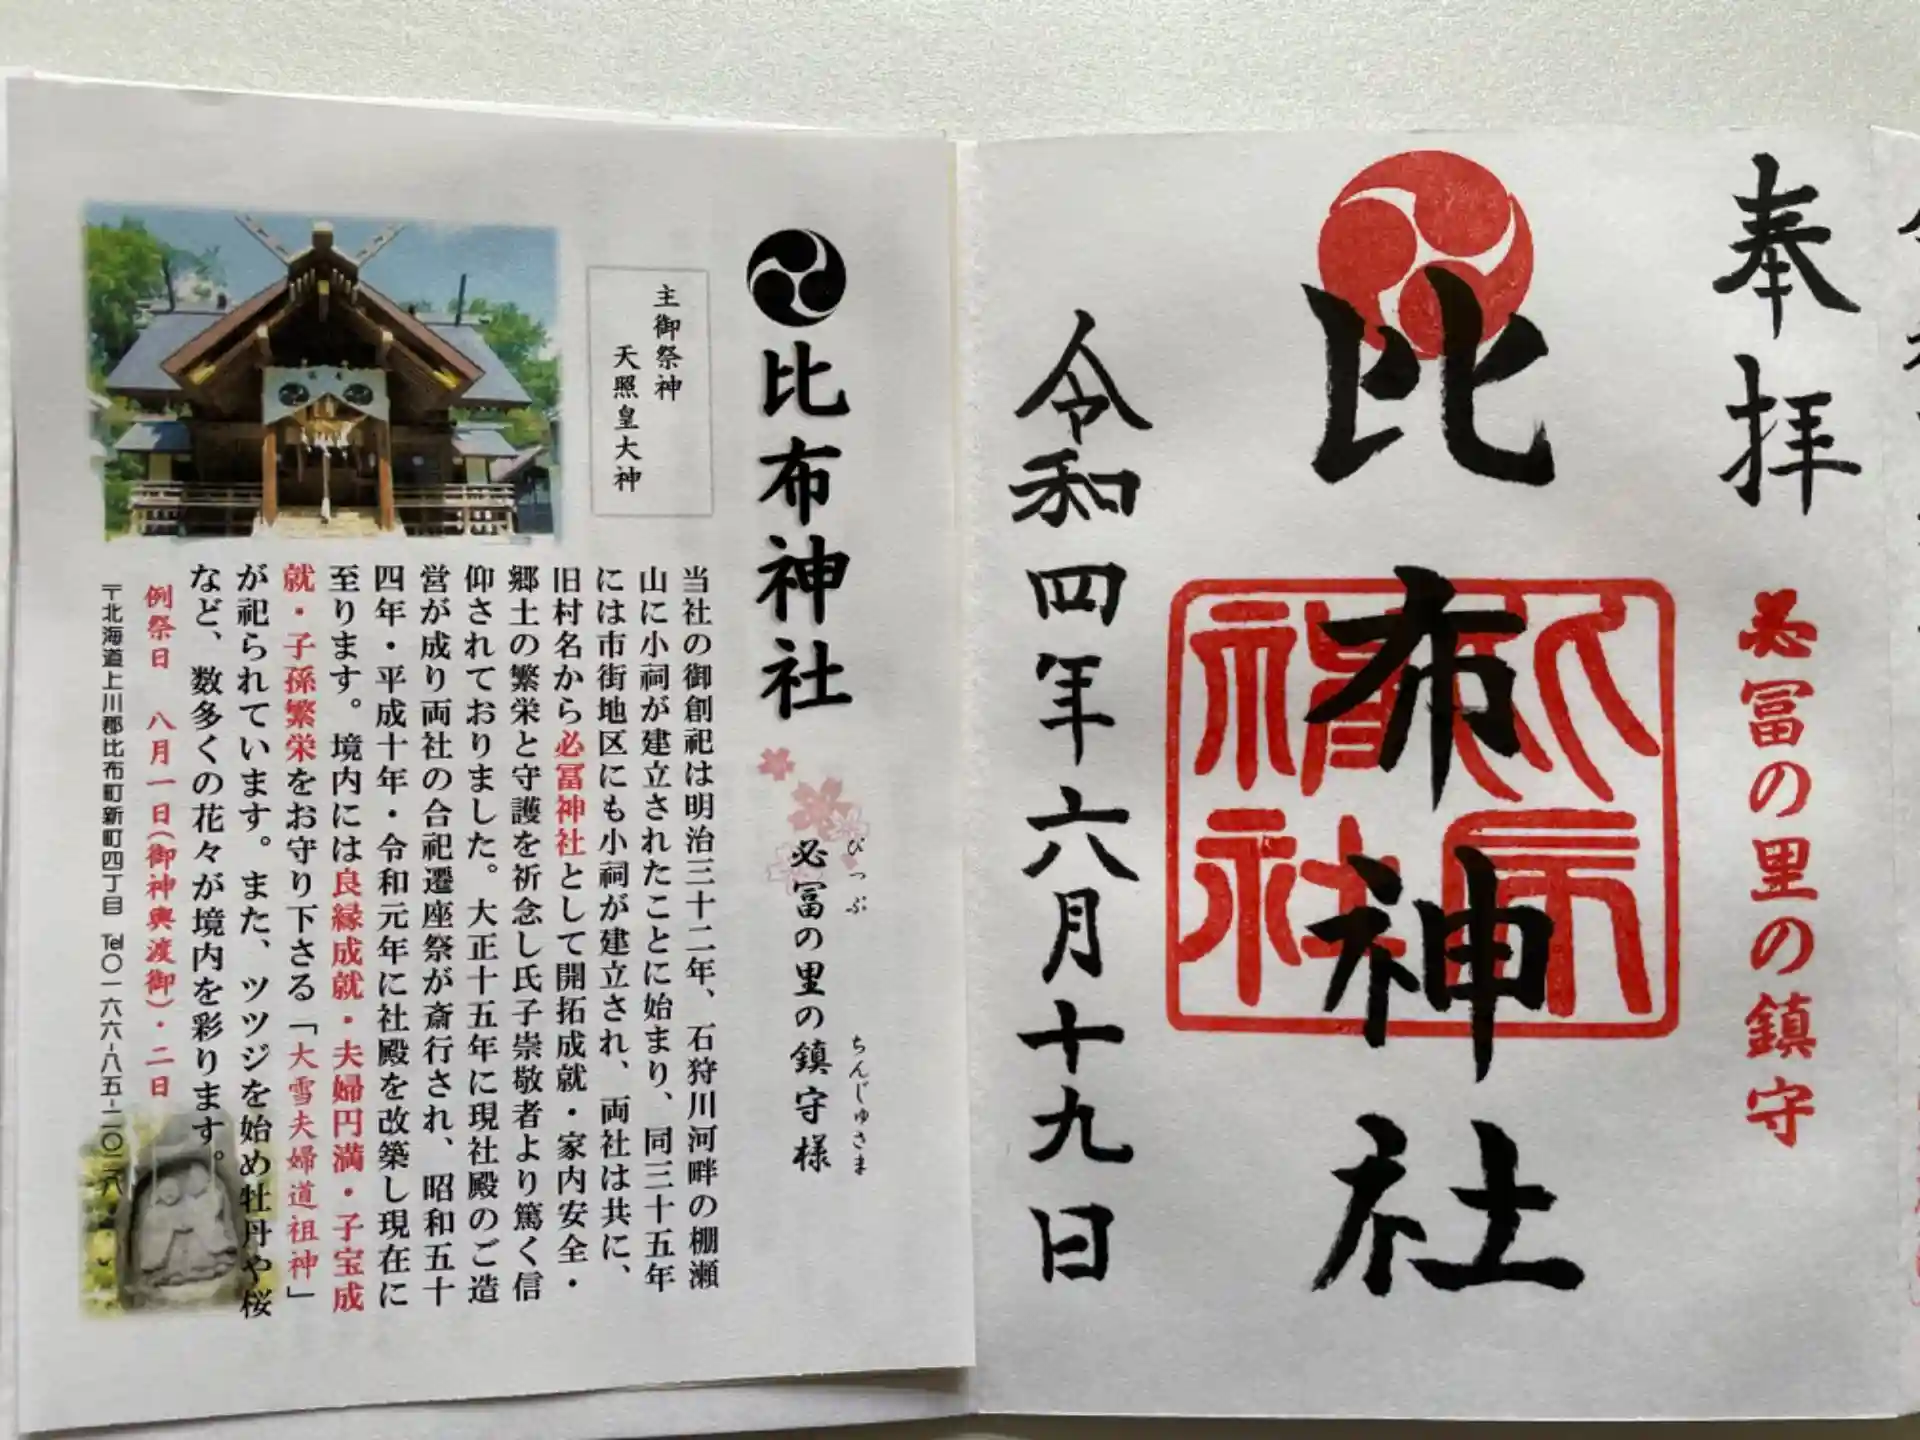 奉拝
必冨の里の鎮守
比布神社
令和四年六月十九日
比布神社
必冨の里の鎮守様
ぴっぷ
ちんじゅさま
主御祭神
天照皇大神
当社の御創祀は明治三十二年、石狩川河畔の棚瀬
山に小祠が建立されたことに始まり、同三十五年
には市街地区にも小祠が建立され、両社は共に、
旧村名から必冨神社として開拓成就・家内安全・
郷土の繁栄と守護を祈念し氏子崇敬者より篤く信
仰されておりました。大正十五年に現社殿のご造
営が成り両社の合祀遷座祭が斎行され、昭和五十
四年・平成十年・令和元年に社殿を改築し現在に
至ります。境内には良縁成就・夫婦円満・子宝成
就・子孫繁栄をお守り下さる「大雪夫婦道祖神」
が祀られています。また、ツツジを始め牡丹や桜
など、数多くの花々が境内を彩ります。
例祭日 八月一日(御神輿渡御)・二日
〒北海道上川郡比布町新町四丁目 Tel〇一六六-八五-二〇二八